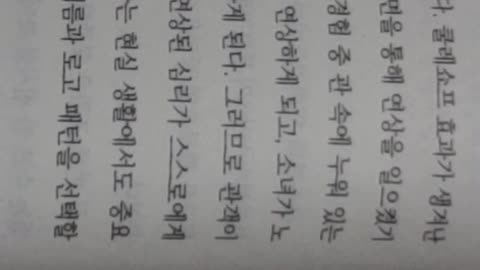 다. 쿨레쇼프 효과가 생겨난
면을 통해 연상을 일으켰기
경험 중 관 속에 누워 있는
연상하게 되고, 소녀가 노
게 된다. 그러므로 관객이
연상된 심리가 스스로에게
는 현실 생활에서도 중요
름과 로고 패턴을 선택할